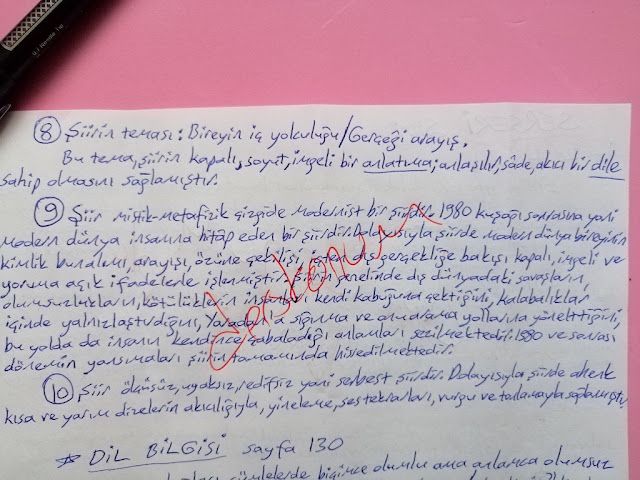 8 Şiirin teması: Bireyin iç yolculuğu/Gerçeği arayış.
Bu tema, şiirin kapalı, soyut, imgeli bir anlatıma; anlaşılır, sade, akıcı bir dile
sahip olmasını sağlamıştır.
9 Şiir mistik-metafizik çizgide modernist bir şiirdir. 1980 kuşağı sonrasına yani
modern dünya insanına hitap eden bir şiirdir. Dolayısıyla, şiirde modern dünya bireyinin
kimlik bunalımı, arayışı, özüne çekilişi, içten dış gerçekliğe bakışı kapalı, imgeli ve
yoruma açık ifadelerle işlenmiştir. Şiirin genelinde dış dünyadaki savaşların,
olumsuzlukların, kötülüklerin insanları kendi kabuğuna çektiğini, kalabalıklar
içinde yalnızlaştırdığını, Yaradan'a sığınma ve onu arama yollarına yönelttiğini,
bu yolda da insanın kendince çabaladığı anlamları sezilmektedir. 1980 ve sonrası
dönemin yansımaları şiirin tamamında hissedilmektedir.
10 Şiir ölçüsüz, uyaksız, redifsiz yani serbest şiirdir. Dolayısıyla şiirde ahenk
kısa ve yarım dizelerin akıcılığıyla, yineleme, ses tekrarları, vurgu ve tonlamayla sağlanmıştır.
DİL BİLGİSİ sayfa 130
cümlelerde biçimce olumlu ama anlamca olumsuz